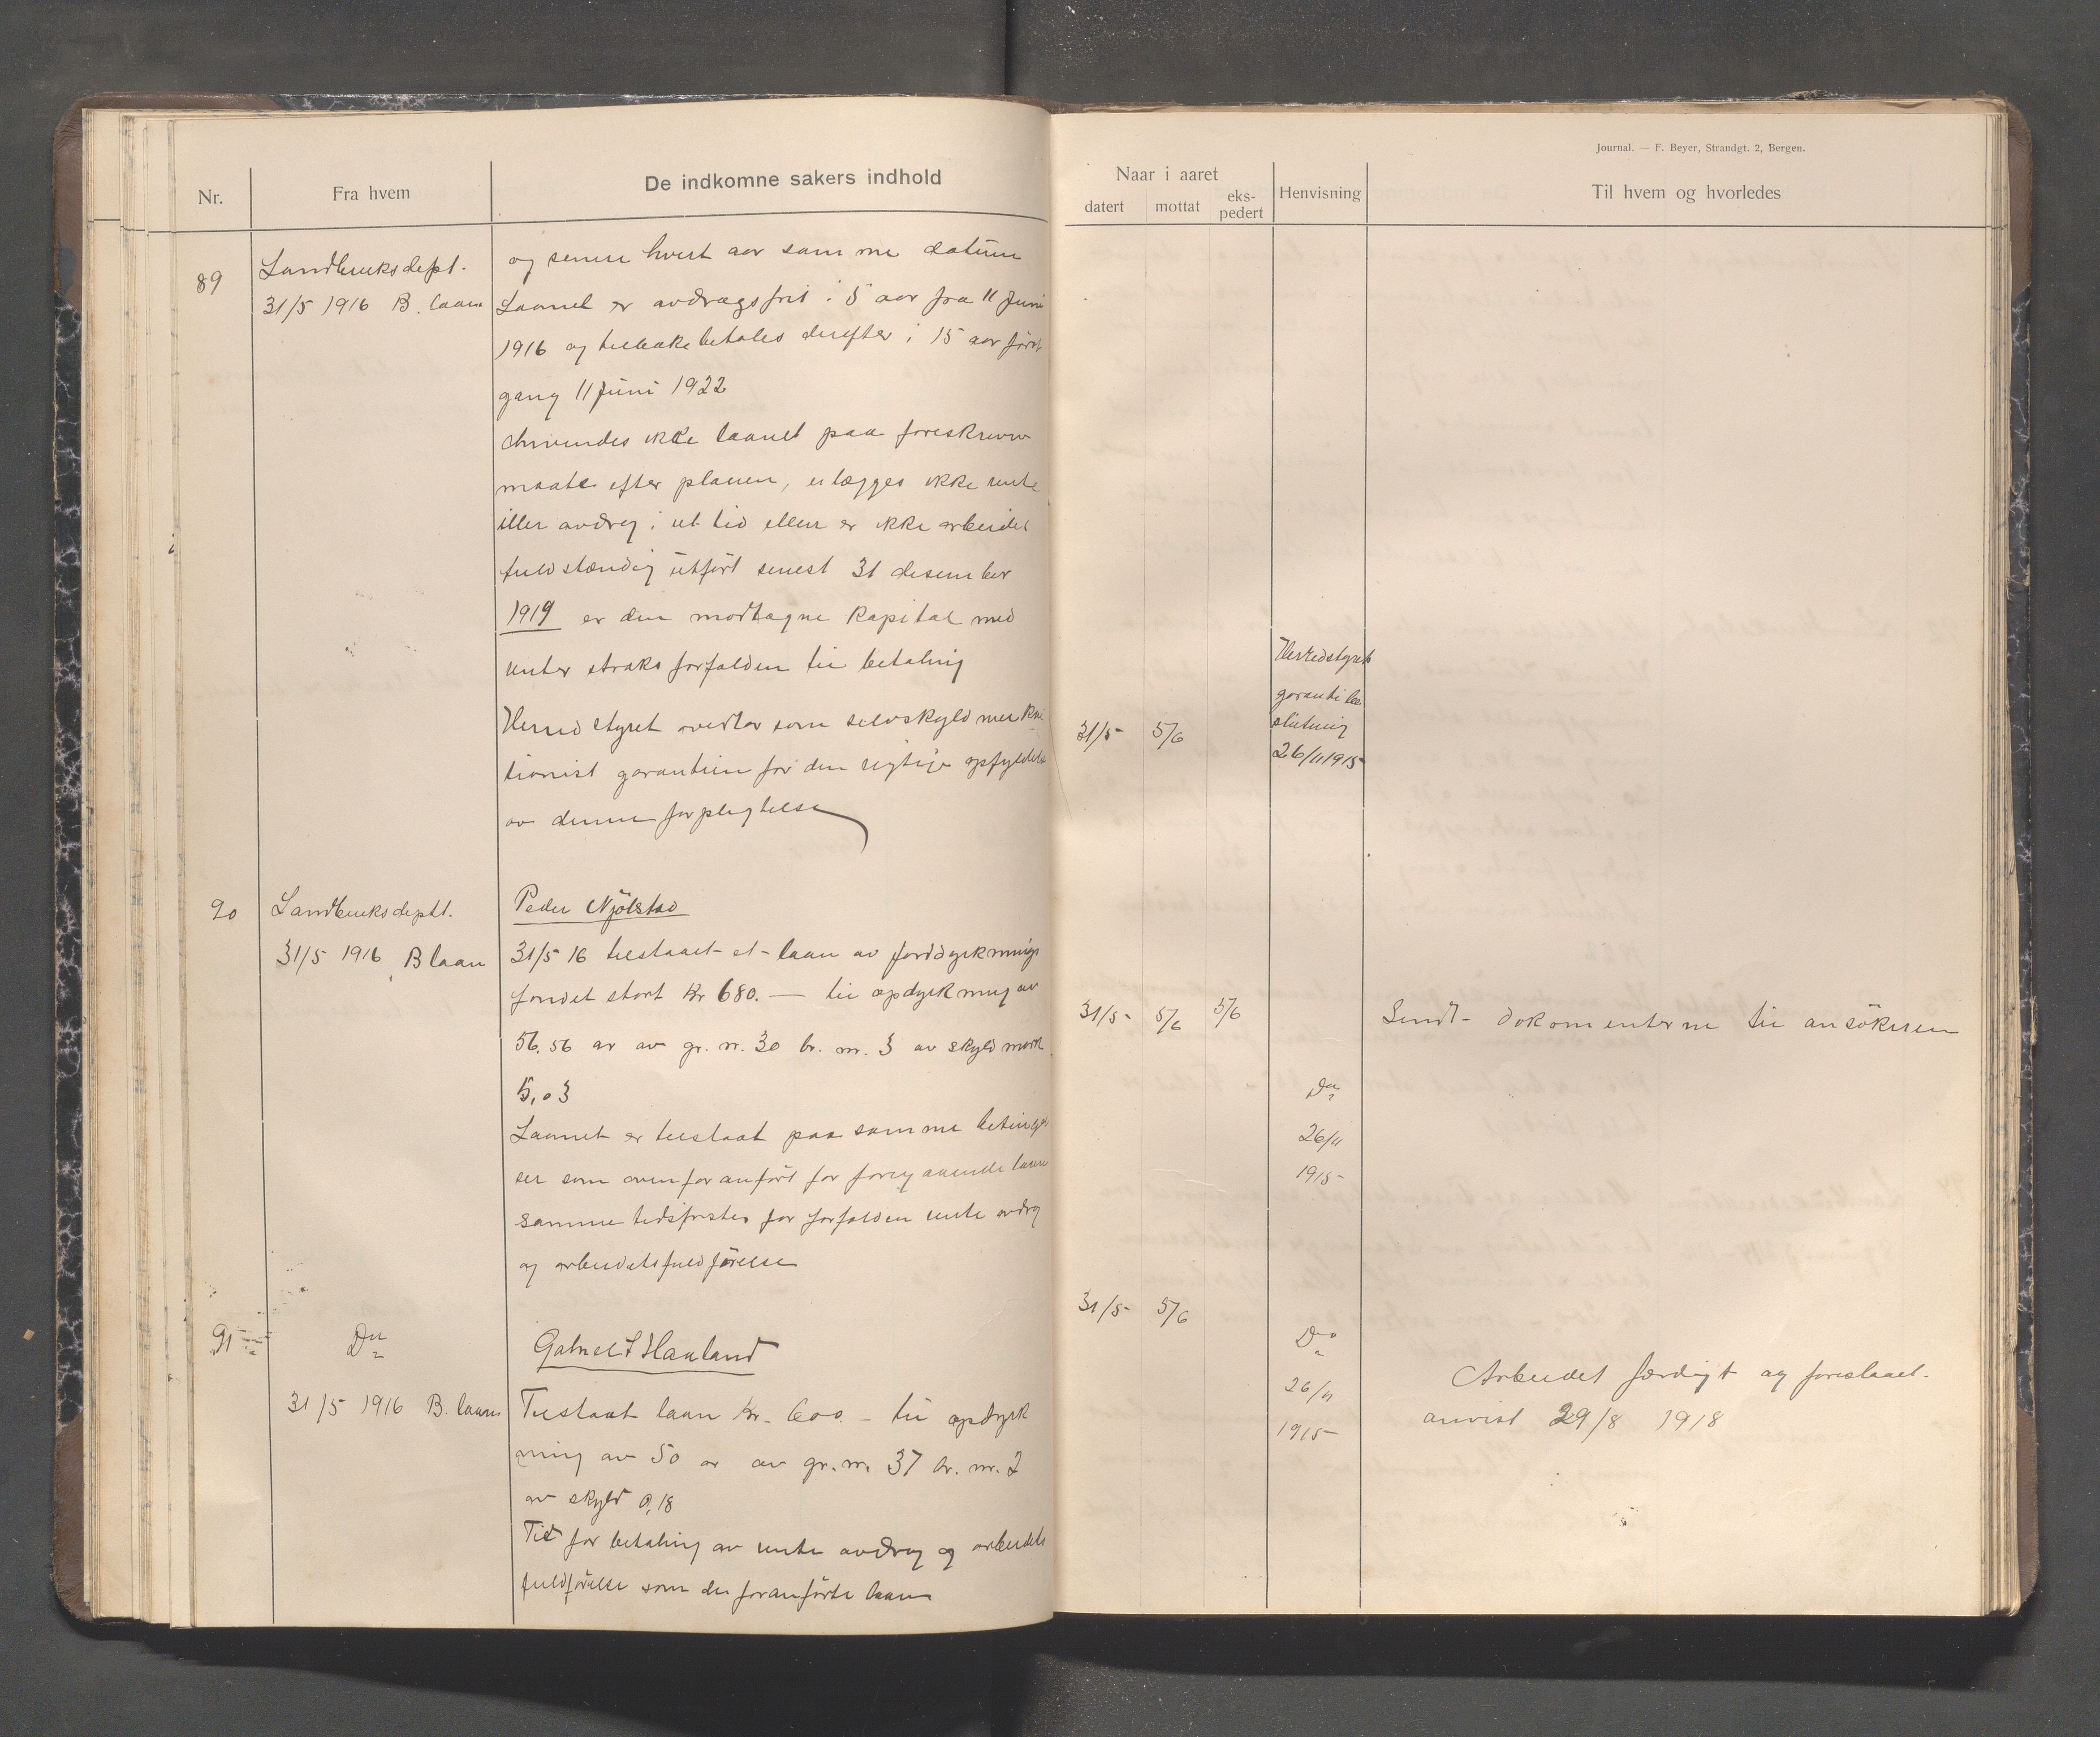 Nr.
Fra hvem
De indkomne sakers indhold
89
Landbruksdept.
31/5 1916 B. laan
og senere hvert aar samme datum
Laanet er avdragsfrit i 5 aar fra 11 Juni
1916 og tilbakebetales derefter i 15 aar först
gang 11 Juni 1922
Anvendes ikke laanet paa foreskreven
maate efter planen, erlægges ikke rente
eller avdrag i ret tid eller er ikke arbeidet
fuldstændig utfört senest 31 desember
1919 er den mottagne Kapital med
renter straks forfalden til betaling
Herredstyret overtar som selvskyldnerkau
tionist garantien for den rigtige opfyldelse
av denne forplegtelse
90
Landbruksdeptt.
31/5 1916 B laan
Peder Njölstad
31/5 16 tilstaaet et laan av jorddyrknings
fondet stort Kr 680. — til opdyrkning av
56,56 ar av gr. nr. 30 br. nr. 3 av skyld mark
5,03
Laanet er tilstaat paa samme betingel
ser som ovenfor anfört for foregaaende laan
samme tidsfrister for forfalden rente avdrag
og arbeidets fuldförelse
91
Do
31/5 1916 B. laan
Gabriel T Hauland
Tilstaat laan Kr. 600. – til opdyrk
ning av 50 ar av gr. nr. 37 br. nr. 2
av skyld 0,18
Tid for betaling av rente avdrag og arbeidets
fuldförelse som de foranförte laan
Journal. — F. Beyer, Strandgt. 2, Bergen.
Naar i aaret
datert
mottat
eks-
pedert
Henvisning
Til hvem og hvorledes
31/5
5/6
Herredstyrets
garanti be
slutning
26/11 1915
31/5
5/6
5/6
Do
26/11
1915
Sendt dokumenterne til ansökeren
31/5
5/6
Do
26/11
1915
Arbeidet færdigt og foreslaaet
anvist 29/8 1918